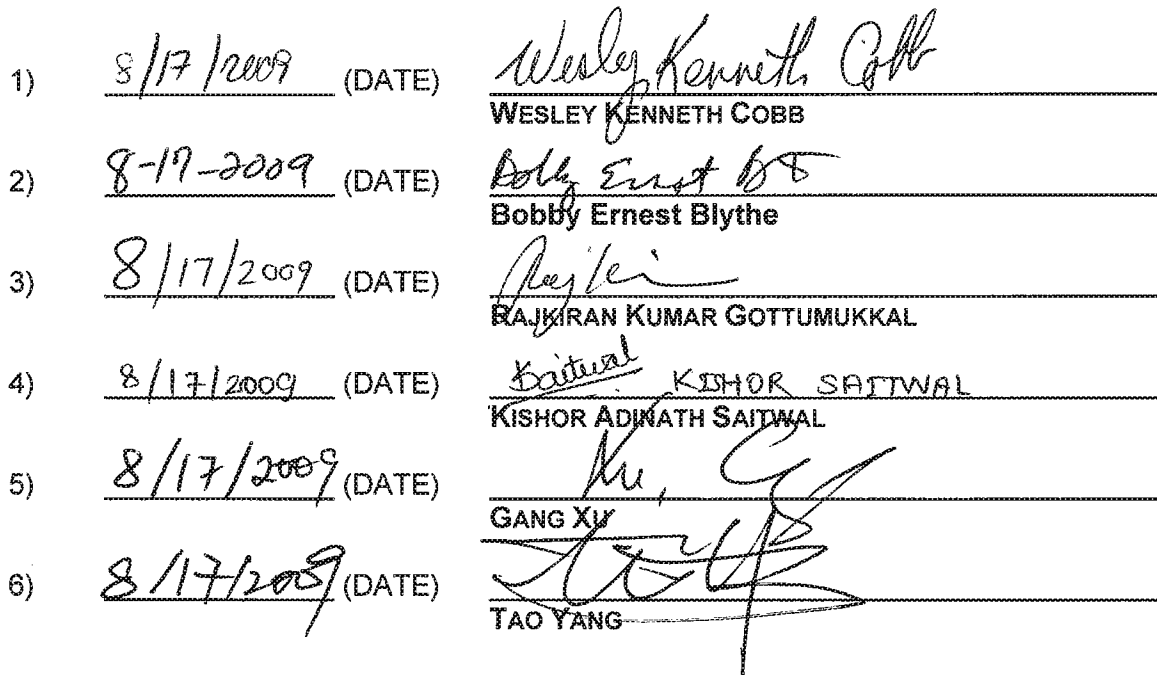 1) 8/17/2009 (DATE) Wesley Kenneth Cobb
WESLEY KENNETH COBB
2) 8-17-2009 (DATE) Bobby Ernest
Bobby Ernest Blythe
3) 8/17/2009 (DATE)
RAJKIRAN KUMAR GOTTUMUKKAL
4) 8/17/2009 (DATE) Saitwal KISHOR SAITWAL
KISHOR ADINATH SAITWAL
5) 8/17/2009 (DATE) Xu,
GANG XU
6) 8/17/2009 (DATE)
TAO YANG